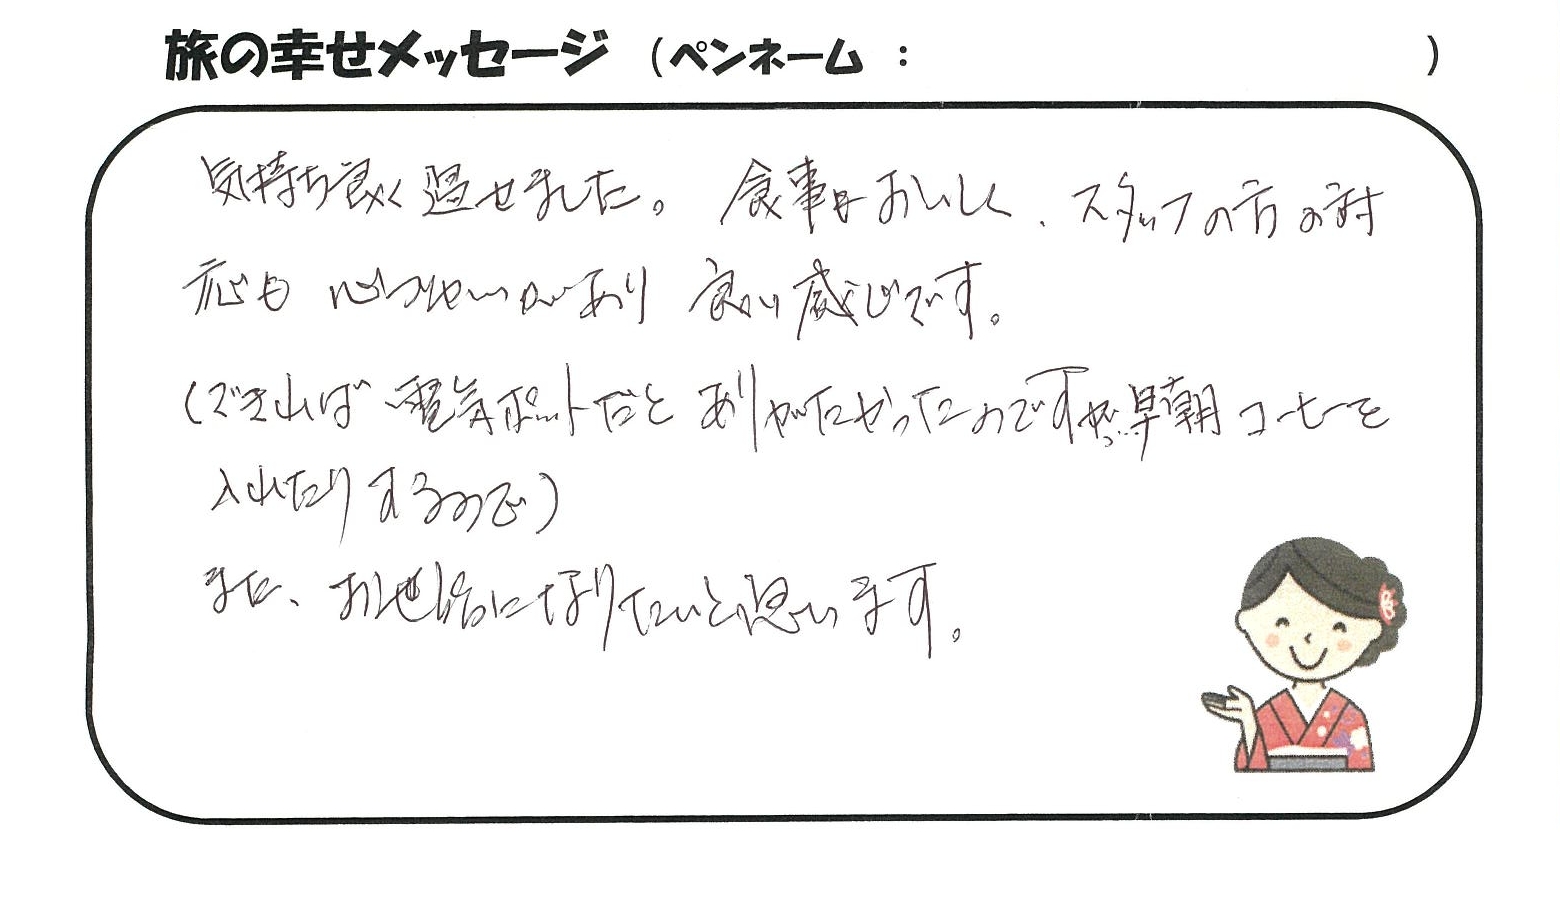 旅の幸せメッセージ (ペンネーム : )
気持ち良く過せました。食事もおいしく、スタッフの方の対
応も心づかいがあり良い感じです。
(できれば電気ポットだとありがたかったのですが…早朝コーヒーを
入れたりするので)
また、お世話になりたいと思います。